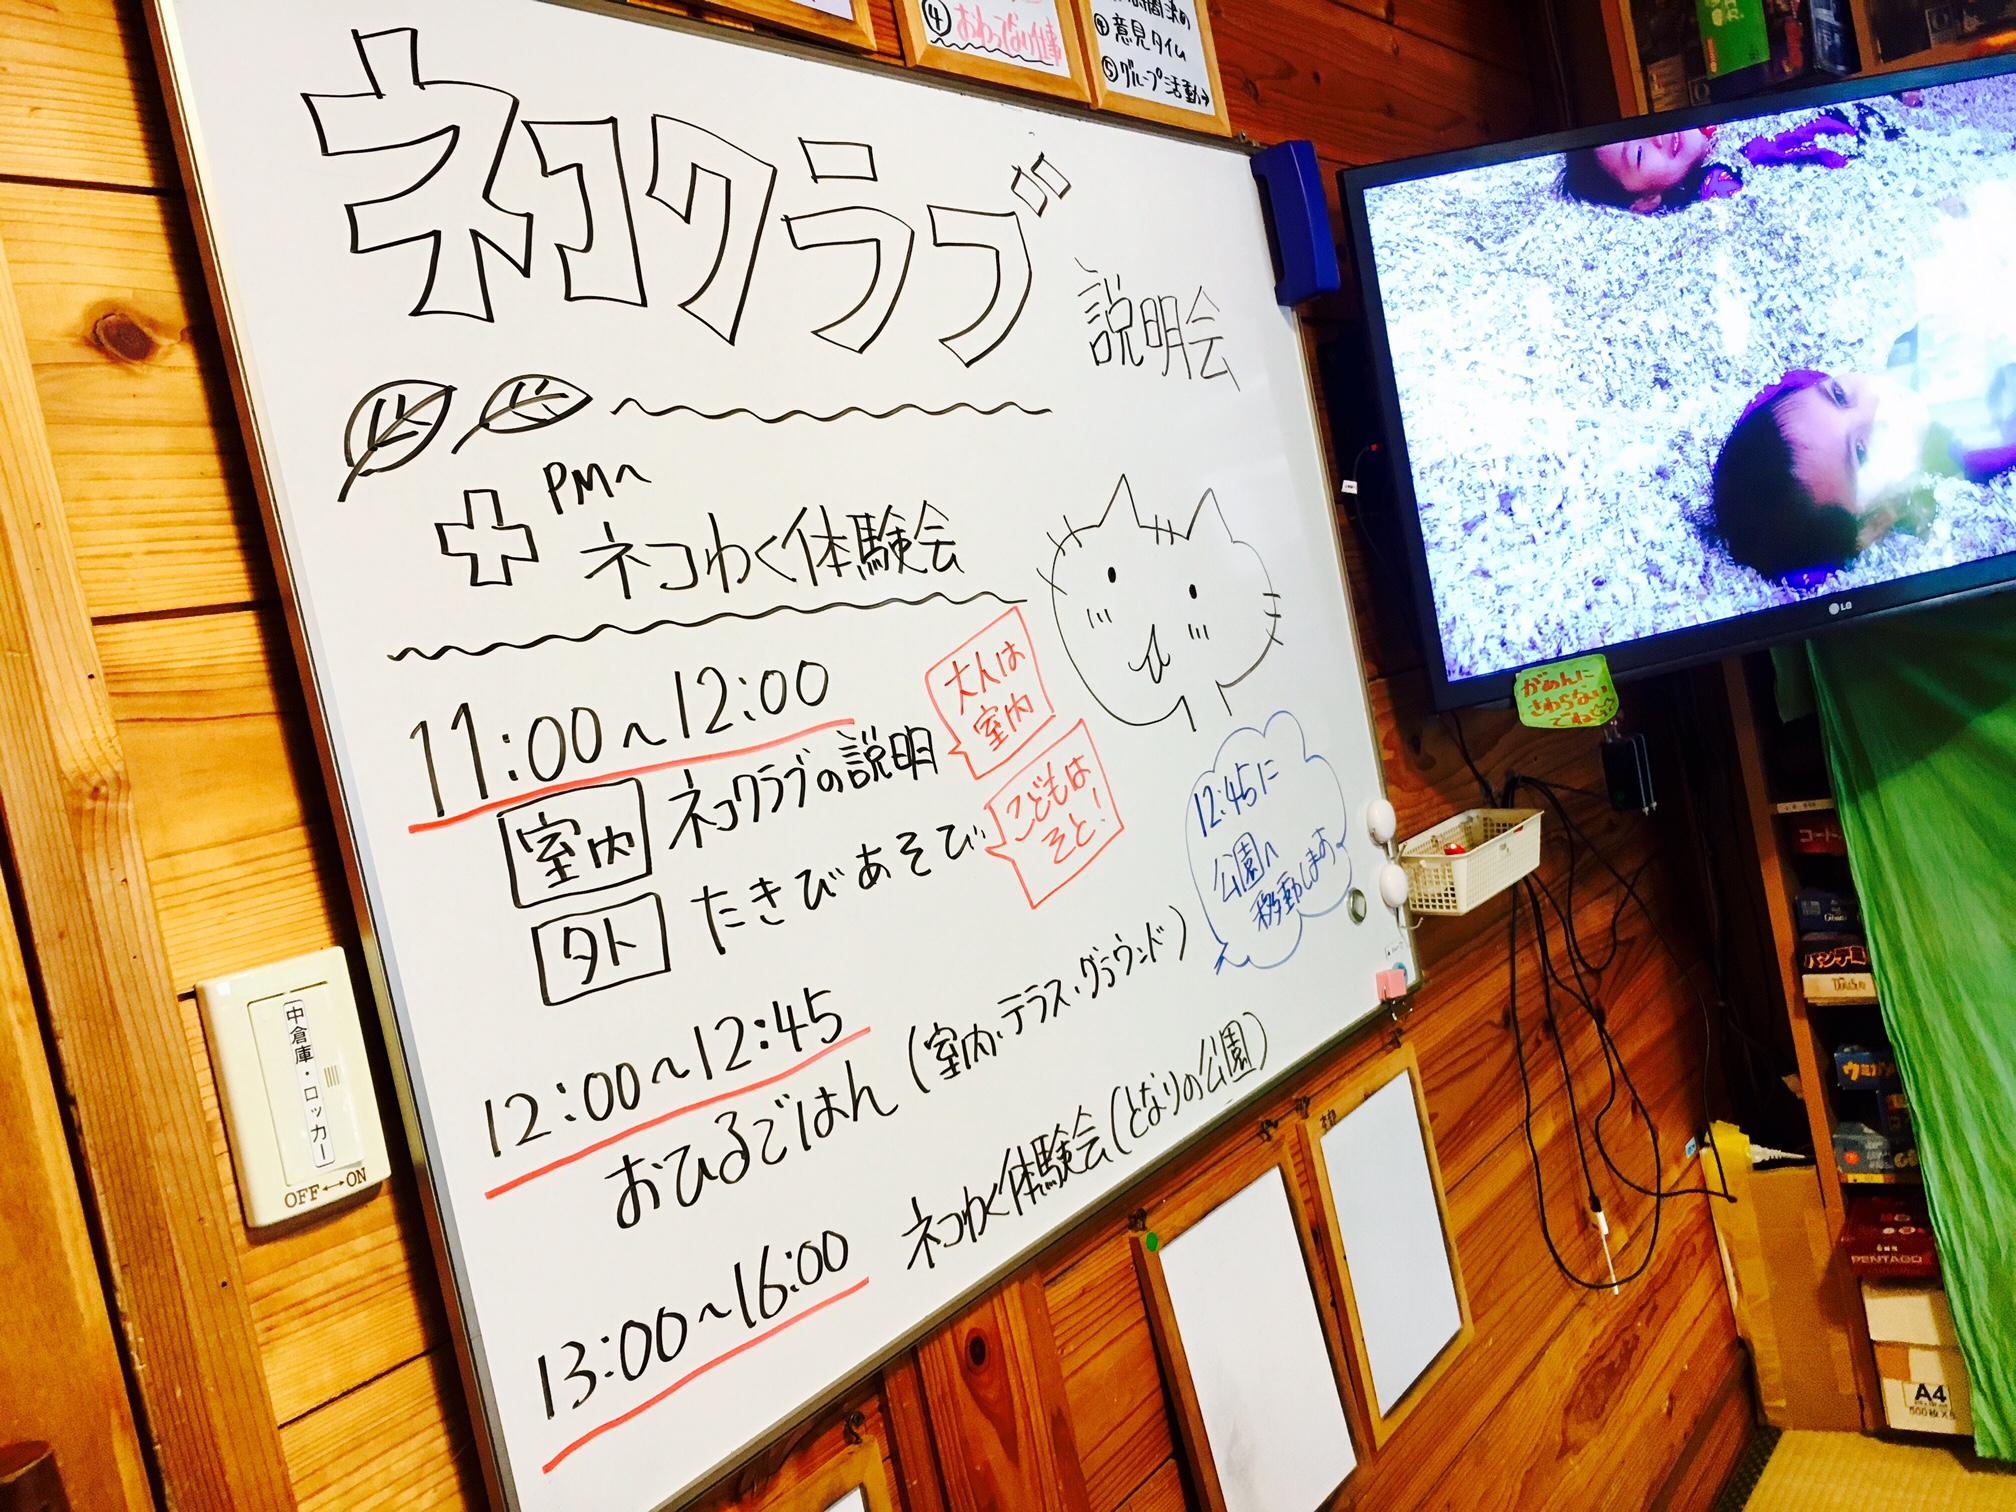 ④おわってない仕事
④意見タイム
⑤グループ活動→
ネコクラブ
説明会
PM〜
ネコわく体験会
11:00〜12:00
室内 ネコクラブの説明
大人は
室内
外 たきびあそび
こどもは
そと!
12:45に
公園へ
移動します
12:00〜12:45
おひるごはん(室内、テラス、グラウンド)
13:00〜16:00 ネコわく体験会(となりの公園)
中倉庫・ロッカー
OFF↔ON
LG
がめんに
さわらない
でね
PENTAGO
A4
500枚×5